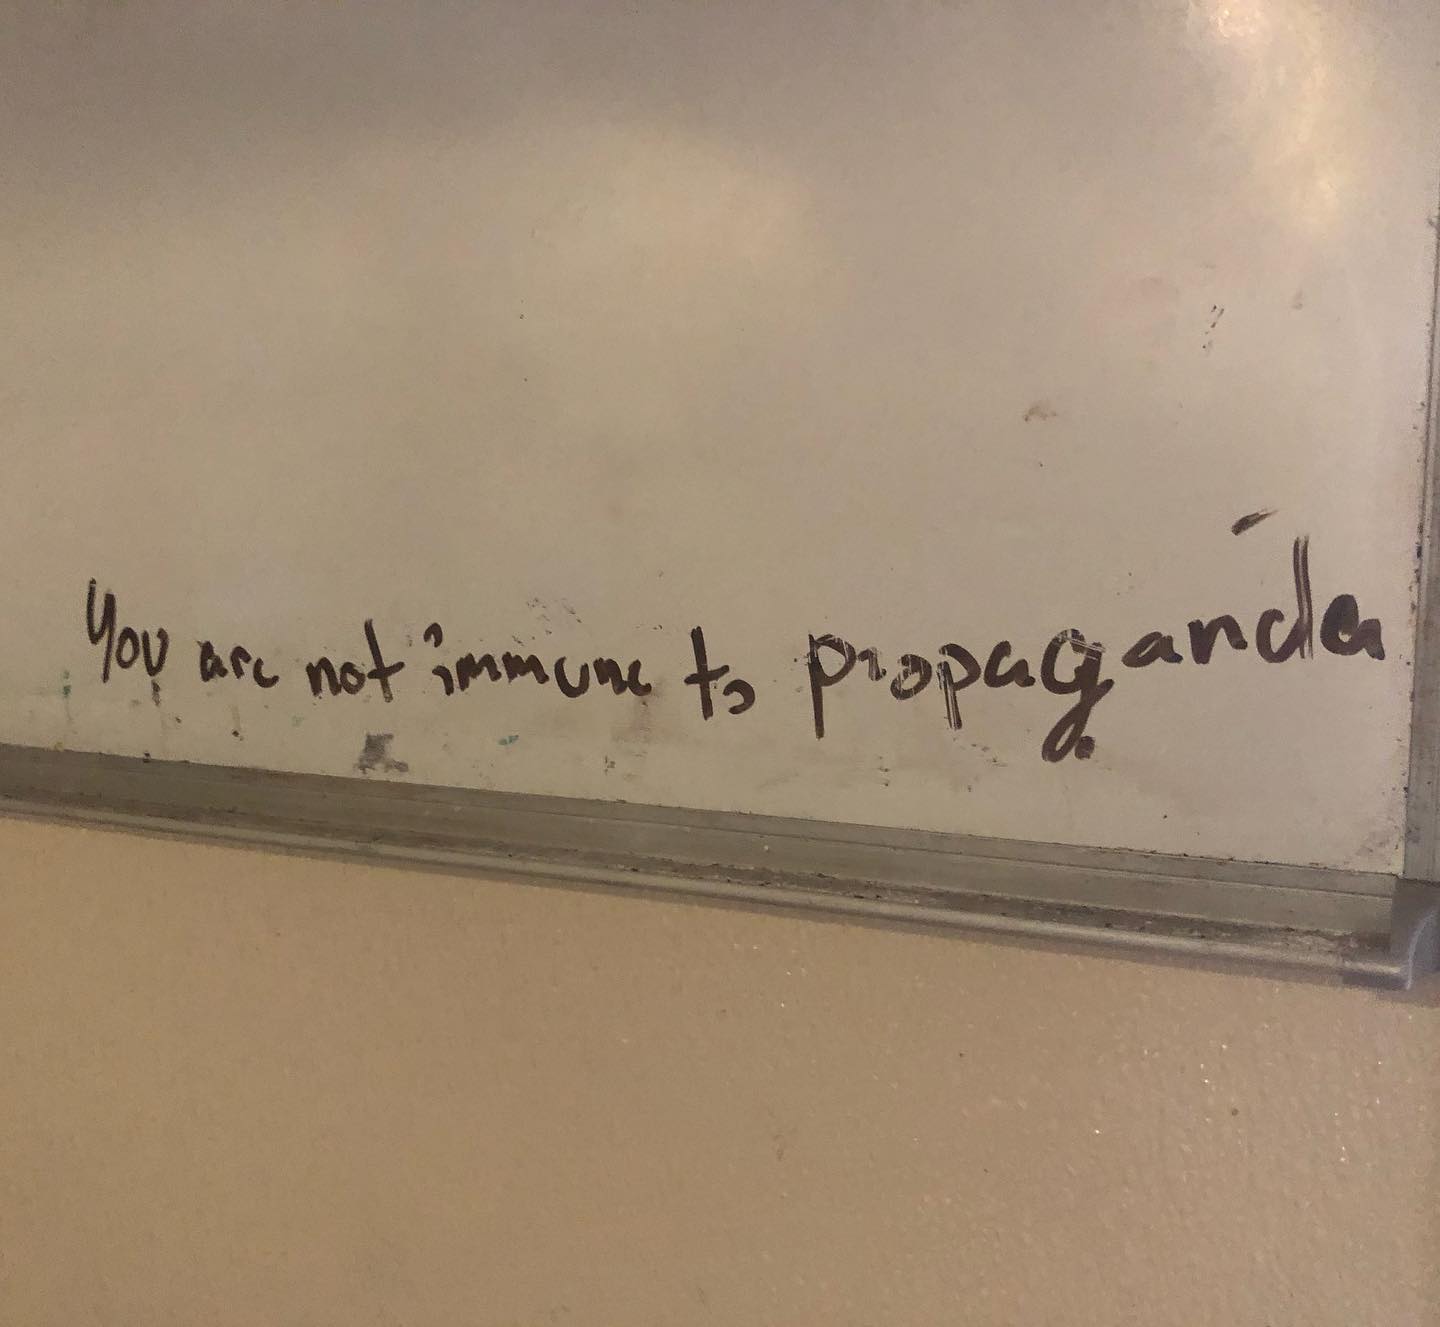 You are not immune to propaganda